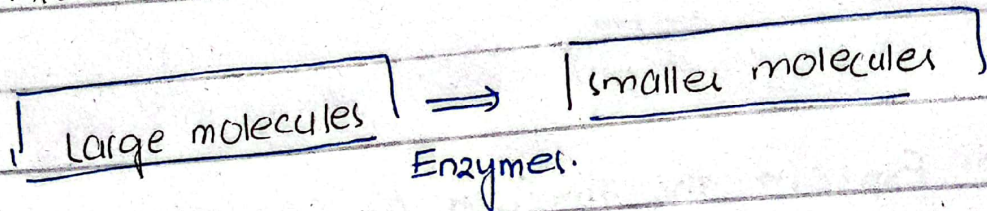 Large molecules ⟹ smaller molecules
Enzymes.